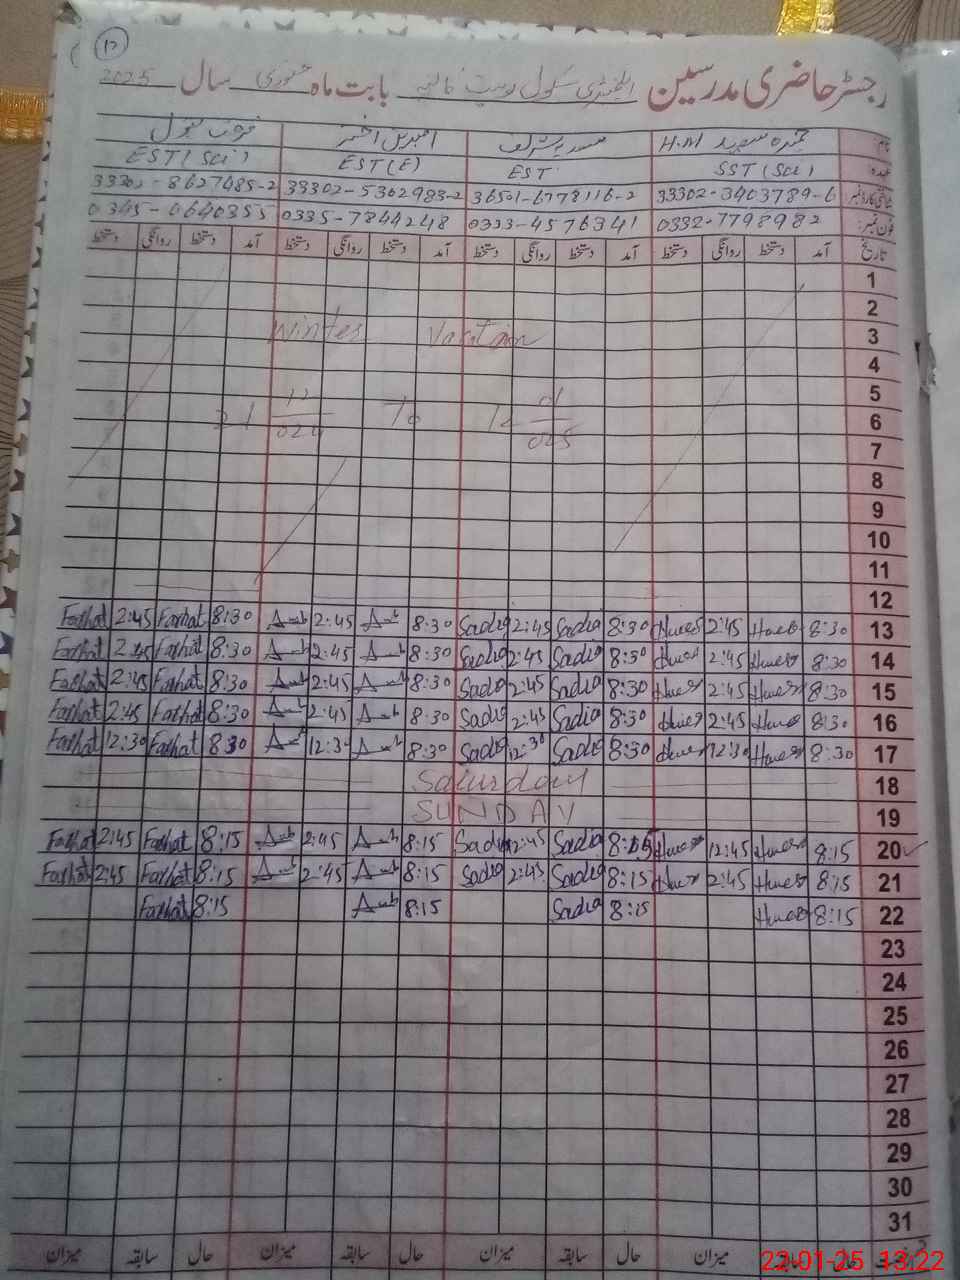 ۱۲
رجسٹر حاضری مدرسین ایلیمنٹری سکول بابت ماہ جنوری سال 2025
نام: H.M
عہدہ: SST (Sci) EST EST (E) EST (Sci)
شناختی کارڈ نمبر 33302-3403789-6 36501-6778116-2 33302-5302983-2 33302-8627485-2
فون نمبر: 0332-7798982 0333-4576341 0335-7844248 0345-0640355
تاریخ آمد دستخط روانگی دستخط آمد دستخط روانگی دستخط آمد دستخط روانگی دستخط آمد دستخط روانگی دستخط
1
2
Winter Vacation 3
4
5
21 12/024 To 12 01/025 6
7
8
9
10
11
12
Farhat 2:45 Farhat 8:30 Amb 2:45 Amb 8:30 Sadia 2:45 Sadia 8:30 2:45 8:30 13
Farhat 2:45 Farhat 8:30 Amb 2:45 Amb 8:30 Sadia 2:45 Sadia 8:30 2:45 8:30 14
Farhat 2:45 Farhat 8:30 Amb 2:45 Amb 8:30 Sadia 2:45 Sadia 8:30 2:45 8:30 15
Farhat 2:45 Farhat 8:30 Amb 2:45 Amb 8:30 Sadia 2:45 Sadia 8:30 2:45 8:30 16
Farhat 12:30 Farhat 8:30 Amb 12:30 Amb 8:30 Sadia 12:30 Sadia 8:30 12:30 8:30 17
Saturday 18
SUNDAY 19
Farhat 2:45 Farhat 8:15 Amb 2:45 Amb 8:15 Sadia 2:45 Sadia 8:15 12:45 8:15 20
Farhat 2:45 Farhat 8:15 Amb 2:45 Amb 8:15 Sadia 2:45 Sadia 8:15 2:45 8:15 21
Farhat 8:15 Amb 8:15 Sadia 8:15 8:15 22
23
24
25
26
27
28
29
30
31
حال سابقہ میزان حال سابقہ میزان حال سابقہ میزان حال سابقہ میزان
22-01-25 13:22